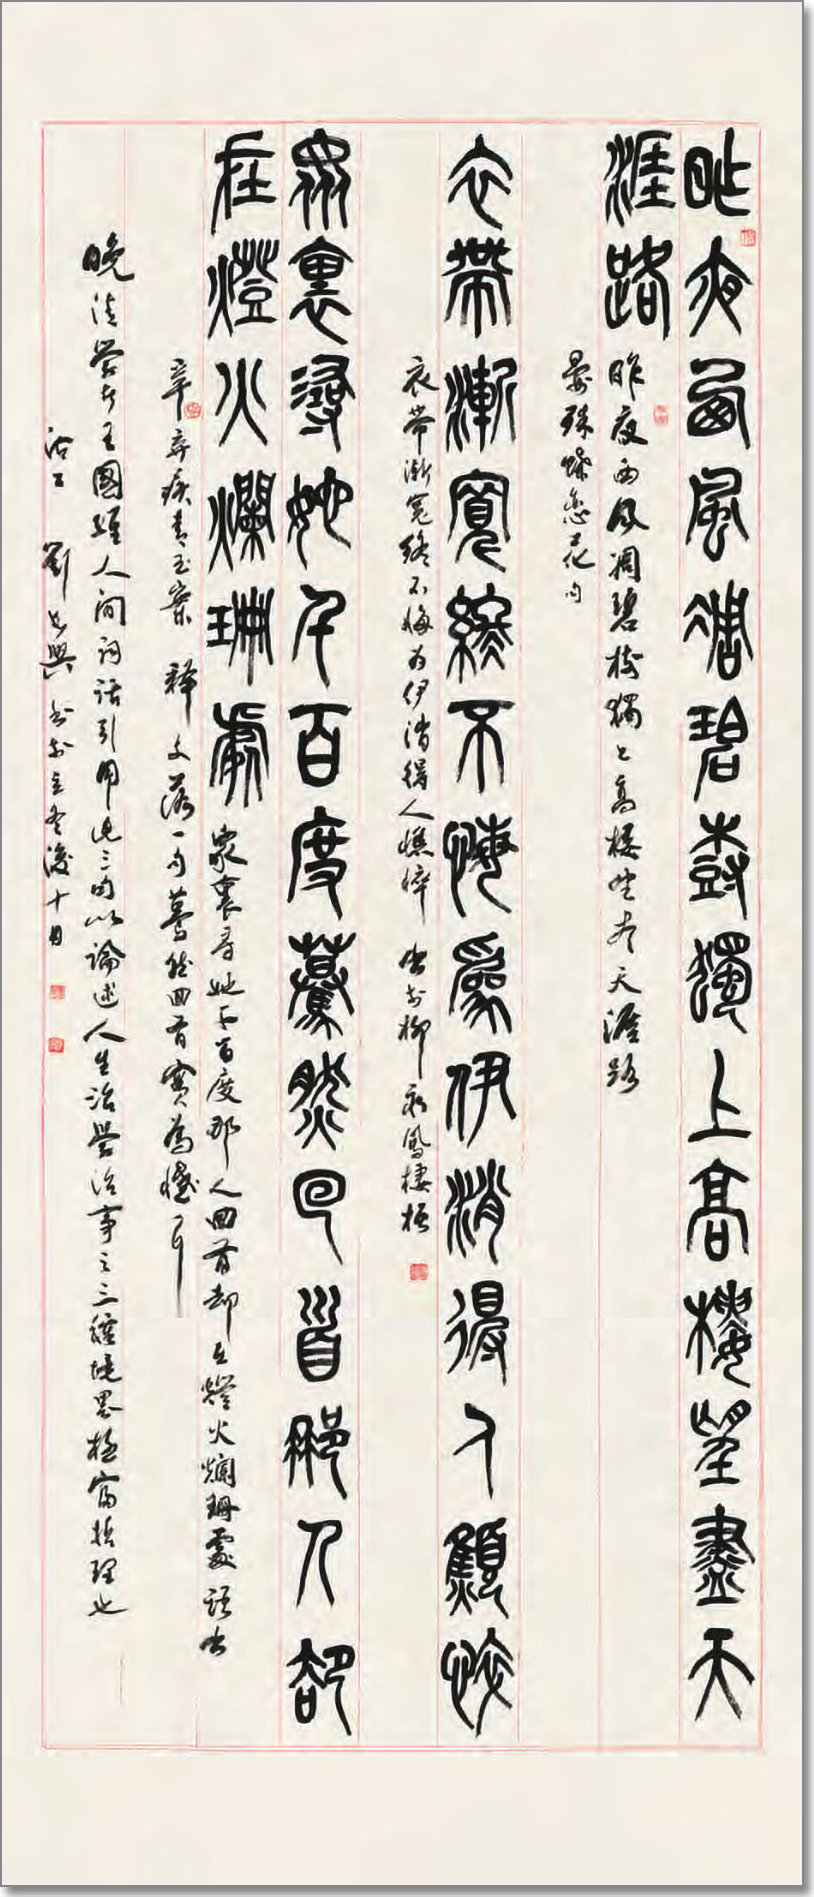 昨夜西風凋碧樹獨上高樓望盡天
涯路
昨夜西風凋碧樹獨上高樓望盡天涯路
晏殊蝶戀花句
衣帶漸寬終不悔爲伊消得人顦悴
衣帶漸寬終不悔為伊消得人憔悴 出於柳永鳳棲梧
衆裏尋她千百度驀然回首那人卻
在燈火爛珊處
眾裏尋她千百度那人回首却在燈火爛珊處語出
辛棄疾青玉案 釋文落一句驀然回首實為憾事
晚清學者王國維人間詞話引用此三句以論述人生治學治事之三種境界極富哲理也
劉 興 書於 冬 後十日